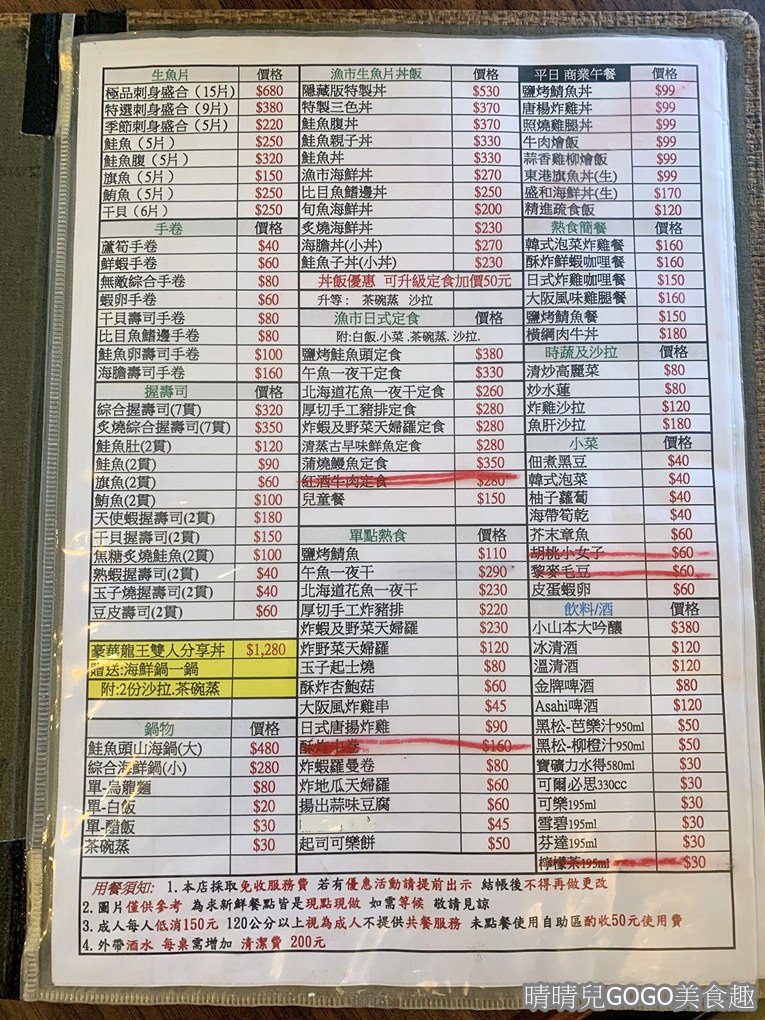 生魚片 價格
極品刺身盛合（15片） $680
特選刺身盛合（9片） $380
季節刺身盛合（5片） $220
鮭魚（5片） $250
鮭魚腹（5片） $320
旗魚（5片） $150
鮪魚（5片） $250
干貝（6片） $250
手卷 價格
蘆筍手卷 $40
鮮蝦手卷 $60
無敵綜合手卷 $80
蝦卵手卷 $60
干貝壽司手卷 $80
比目魚鰭邊手卷 $80
鮭魚卵壽司手卷 $100
海膽壽司手卷 $160
握壽司 價格
綜合握壽司(7貫) $320
炙燒綜合握壽司(7貫) $350
鮭魚肚(2貫) $120
鮭魚(2貫) $90
旗魚(2貫) $60
鮪魚(2貫) $100
天使蝦握壽司(2貫) $180
干貝握壽司(2貫) $150
焦糖炙燒鮭魚(2貫) $100
熟蝦握壽司(2貫) $40
玉子燒握壽司(2貫) $40
豆皮壽司(2貫) $60
豪華龍王雙人分享丼 $1,280
贈送:海鮮鍋一鍋
附:2份沙拉.茶碗蒸
鍋物 價格
鮭魚頭山海鍋(大) $480
綜合海鮮鍋(小) $280
單-烏龍麵 $80
單-白飯 $20
單-醋飯 $30
茶碗蒸 $30
漁市生魚片丼飯 價格
隱藏版特製丼 $530
特製三色丼 $370
鮭魚腹丼 $370
鮭魚親子丼 $330
鮭魚丼 $330
漁市海鮮丼 $270
比目魚鰭邊丼 $250
旬魚海鮮丼 $200
炙燒海鮮丼 $230
海膽丼(小丼) $270
鮭魚子丼(小丼) $230
丼飯優惠 可升級定食加價50元
升等： 茶碗蒸 沙拉
漁市日式定食 價格
附:白飯.小菜.茶碗蒸.沙拉.
鹽烤鮭魚頭定食 $380
午魚一夜干定食 $330
北海道花魚一夜干定食 $260
厚切手工豬排定食 $280
炸蝦及野菜天婦羅定食 $280
清蒸古早味鮮魚定食 $280
蒲燒鰻魚定食 $350
紅酒牛肉定食 $280
兒童餐 $150
單點熱食 價格
鹽烤鯖魚 $110
午魚一夜干 $290
北海道花魚一夜干 $230
厚切手工炸豬排 $220
炸蝦及野菜天婦羅 $230
炸野菜天婦羅 $120
玉子起士燒 $80
酥炸杏鮑菇 $60
大阪風雞串 $45
日式唐揚炸雞 $90
$160
炸蝦羅曼卷 $80
炸地瓜天婦羅 $60
揚出蒜味豆腐 $60
$45
起司可樂餅 $50
平日 商業午餐 價格
鹽烤鯖魚丼 $99
唐楊炸雞丼 $99
照燒雞腿丼 $99
牛肉燴飯 $99
蒜香雞柳燴飯 $99
東港旗魚丼(生) $99
盛和海鮮丼(生) $170
精進疏食飯 $120
熱食簡餐 價格
韓式泡菜炸雞餐 $160
酥炸鮮蝦咖哩餐 $160
日式炸雞咖哩餐 $150
大阪風味雞腿餐 $160
鹽烤鯖魚餐 $150
橫綱肉牛丼 $180
時蔬及沙拉 價格
清炒高麗菜 $80
炒水蓮 $80
炸雞沙拉 $120
魚肝沙拉 $180
小菜 價格
佃煮黑豆 $40
韓式泡菜 $40
柚子蘿蔔 $40
海帶筍乾 $40
芥末章魚 $60
胡桃小女子 $60
黎麥毛豆 $60
皮蛋蝦卵 $60
飲料/酒 價格
小山本大吟釀 $380
冰清酒 $120
溫清酒 $120
金牌啤酒 $80
Asahi啤酒 $120
黑松-芭樂汁950ml $50
黑松-柳橙汁950ml $50
寶礦力水得580ml $30
可爾必思330cc $30
可樂195ml $30
雪碧195ml $30
芬達195ml $30
檸檬茶195ml $30
用餐須知: 1.本店採取免收服務費 若有優惠活動請提前出示 結帳後不得再做更改
2.圖片僅供參考 為求新鮮餐點皆是現點現做 如需等候 敬請見諒
3.成人每人低消150元 120公分以上視為成人不提供共餐服務 未點餐使用自助區酌收50元使用費
4.外帶酒水 每桌需增加 清潔費 200元
晴晴兒GOGO美食趣